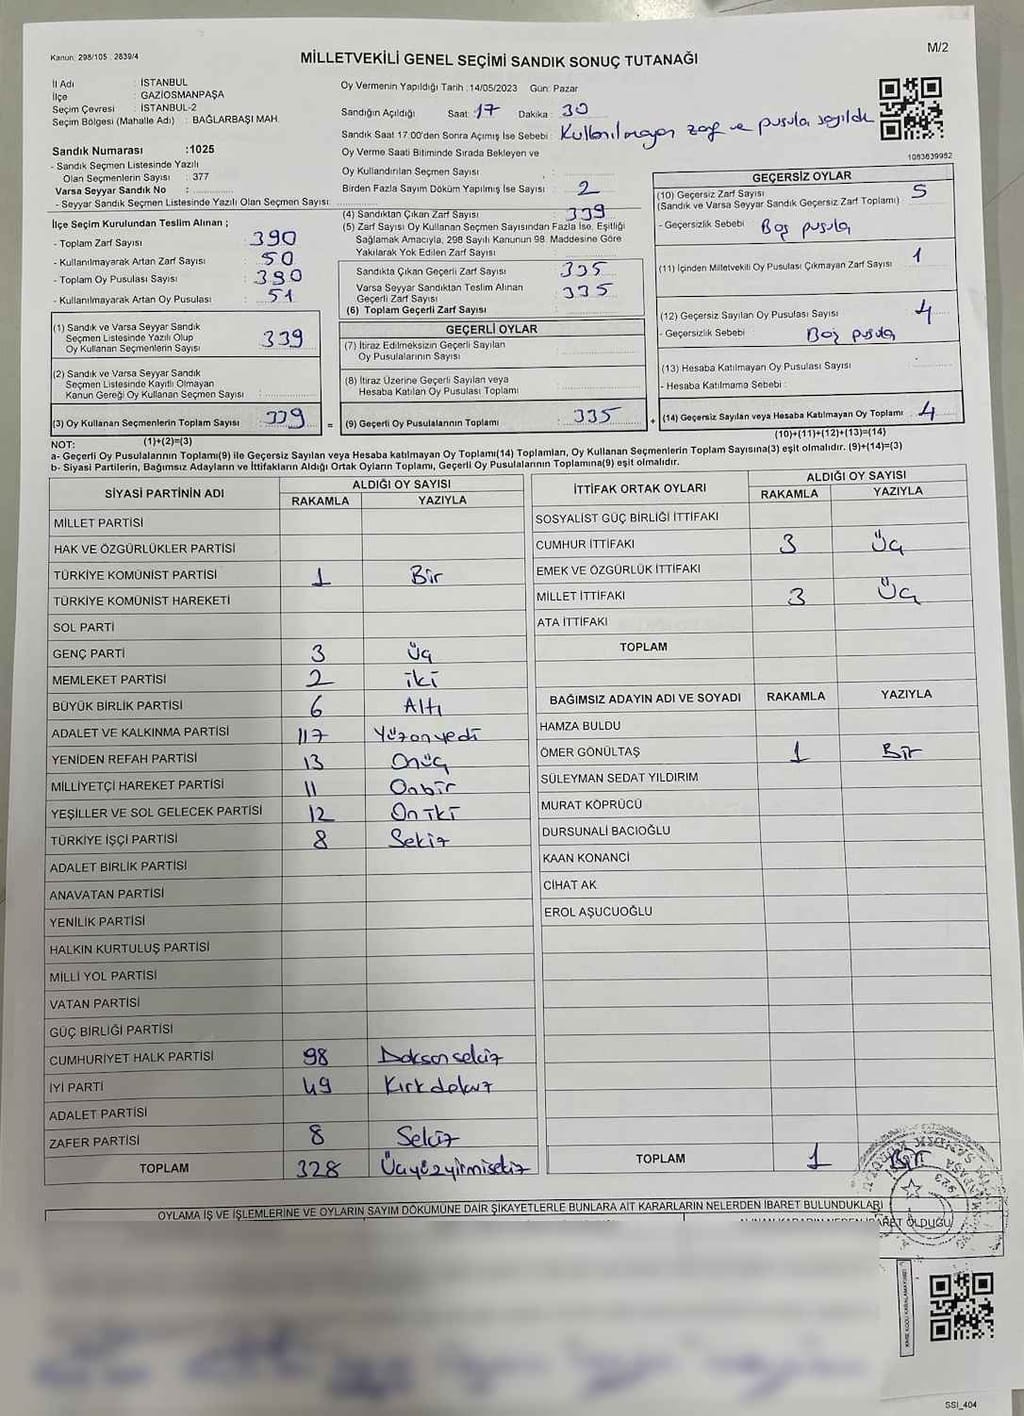 Kanun: 298/105 2839/4
MİLLETVEKİLİ GENEL SEÇİMİ SANDIK SONUÇ TUTANAĞI
M/2
İl Adı : İSTANBUL
İlçe : GAZİOSMANPAŞA
Seçim Çevresi : İSTANBUL-2
Seçim Bölgesi (Mahalle Adı) : BAĞLARBAŞI MAH.
Oy Vermenin Yapıldığı Tarih :14/05/2023 Gün: Pazar
Sandığın Açıldığı Saat :17 Dakika : 30
Sandık Saat 17:00'den Sonra Açmış İse Sebebi : Kullanılmayan zarf ve pusula sayıldı
Oy Verme Saati Bitiminde Sırada Bekleyen ve
Oy Kullandırılan Seçmen Sayısı :
Birden Fazla Sayım Döküm Yapılmış İse Sayısı : 2
1083639982
Sandık Numarası :1025
- Sandık Seçmen Listesinde Yazılı
Olan Seçmenlerin Sayısı : 377
Varsa Seyyar Sandık No :
- Seyyar Sandık Seçmen Listesinde Yazılı Olan Seçmen Sayısı:
İlçe Seçim Kurulundan Teslim Alınan ;
- Toplam Zarf Sayısı : 390
- Kullanılmayarak Artan Zarf Sayısı : 50
- Toplam Oy Pusulası Sayısı : 390
- Kullanılmayarak Artan Oy Pusulası : 51
(1) Sandık ve Varsa Seyyar Sandık
Seçmen Listesinde Yazılı Olup
Oy Kullanan Seçmenlerin Sayısı : 339
(2) Sandık ve Varsa Seyyar Sandık
Seçmen Listesinde Kayıtlı Olmayan
Kanun Gereği Oy Kullanan Seçmen Sayısı :
(3) Oy Kullanan Seçmenlerin Toplam Sayısı : 339
(1)+(2)=(3)
(4) Sandıktan Çıkan Zarf Sayısı : 339
(5) Zarf Sayısı Oy Kullanan Seçmen Sayısından Fazla İse, Eşitliği
Sağlamak Amacıyla, 298 Sayılı Kanunun 98. Maddesine Göre
Yakılarak Yok Edilen Zarf Sayısı :
Sandıkta Çıkan Geçerli Zarf Sayısı : 335
Varsa Seyyar Sandıktan Teslim Alınan
Geçerli Zarf Sayısı : 335
(6) Toplam Geçerli Zarf Sayısı :
GEÇERLİ OYLAR
(7) İtiraz Edilmeksizin Geçerli Sayılan
Oy Pusulalarının Sayısı :
(8) İtiraz Üzerine Geçerli Sayılan veya
Hesaba Katılan Oy Pusulası Toplamı :
= (9) Geçerli Oy Pusulalarının Toplamı : 335 +
GEÇERSİZ OYLAR
(10) Geçersiz Zarf Sayısı : 5
(Sandık ve Varsa Seyyar Sandık Geçersiz Zarf Toplamı)
- Geçersizlik Sebebi : Boş pusula
(11) İçinden Milletvekili Oy Pusulası Çıkmayan Zarf Sayısı : 1
(12) Geçersiz Sayılan Oy Pusulası Sayısı : 4
- Geçersizlik Sebebi : Boş pusula
(13) Hesaba Katılmayan Oy Pusulası Sayısı :
- Hesaba Katılmama Sebebi :
(14) Geçersiz Sayılan veya Hesaba Katılmayan Oy Toplamı : 4
(10)+(11)+(12)+(13)=(14)
NOT:
a- Geçerli Oy Pusulalarının Toplamı(9) ile Geçersiz Sayılan veya Hesaba katılmayan Oy Toplamı(14) Toplamları, Oy Kullanan Seçmenlerin Toplam Sayısına(3) eşit olmalıdır. (9)+(14)=(3)
b- Siyasi Partilerin, Bağımsız Adayların ve İttifakların Aldığı Ortak Oyların Toplamı, Geçerli Oy Pusulalarının Toplamına(9) eşit olmalıdır.
SİYASİ PARTİNİN ADI ALDIĞI OY SAYISI
RAKAMLA YAZIYLA
MİLLET PARTİSİ
HAK VE ÖZGÜRLÜKLER PARTİSİ
TÜRKİYE KOMÜNİST PARTİSİ 1 Bir
TÜRKİYE KOMÜNİST HAREKETİ
SOL PARTİ
GENÇ PARTİ 3 Üç
MEMLEKET PARTİSİ 2 iki
BÜYÜK BİRLİK PARTİSİ 6 Altı
ADALET VE KALKINMA PARTİSİ 117 Yüzonyedi
YENİDEN REFAH PARTİSİ 13 Onüç
MİLLİYETÇİ HAREKET PARTİSİ 11 Onbir
YEŞİLLER VE SOL GELECEK PARTİSİ 12 On iki
TÜRKİYE İŞÇİ PARTİSİ 8 Sekiz
ADALET BİRLİK PARTİSİ
ANAVATAN PARTİSİ
YENİLİK PARTİSİ
HALKIN KURTULUŞ PARTİSİ
MİLLİ YOL PARTİSİ
VATAN PARTİSİ
GÜÇ BİRLİĞİ PARTİSİ
CUMHURİYET HALK PARTİSİ 98 Doksansekiz
İYİ PARTİ 49 Kırkdokuz
ADALET PARTİSİ
ZAFER PARTİSİ 8 Sekiz
TOPLAM 328 Üçyüzyirmisekiz
İTTİFAK ORTAK OYLARI ALDIĞI OY SAYISI
RAKAMLA YAZIYLA
SOSYALİST GÜÇ BİRLİĞİ İTTİFAKI
CUMHUR İTTİFAKI 3 Üç
EMEK VE ÖZGÜRLÜK İTTİFAKI
MİLLET İTTİFAKI 3 Üç
ATA İTTİFAKI
TOPLAM
BAĞIMSIZ ADAYIN ADI VE SOYADI RAKAMLA YAZIYLA
HAMZA BULDU
ÖMER GÖNÜLTAŞ 1 Bir
SÜLEYMAN SEDAT YILDIRIM
MURAT KÖPRÜCÜ
DURSUNALİ BACIOĞLU
KAAN KONANCİ
CİHAT AK
EROL AŞUCUOĞLU
TOPLAM 1 Bir
OYLAMA İŞ VE İŞLEMLERİNE VE OYLARIN SAYIM DÖKÜMÜNE DAİR ŞİKAYETLERLE BUNLARA AİT KARARLARIN NELERDEN İBARET BULUNDUKLARI
OLDUĞU
1923
SSI_404